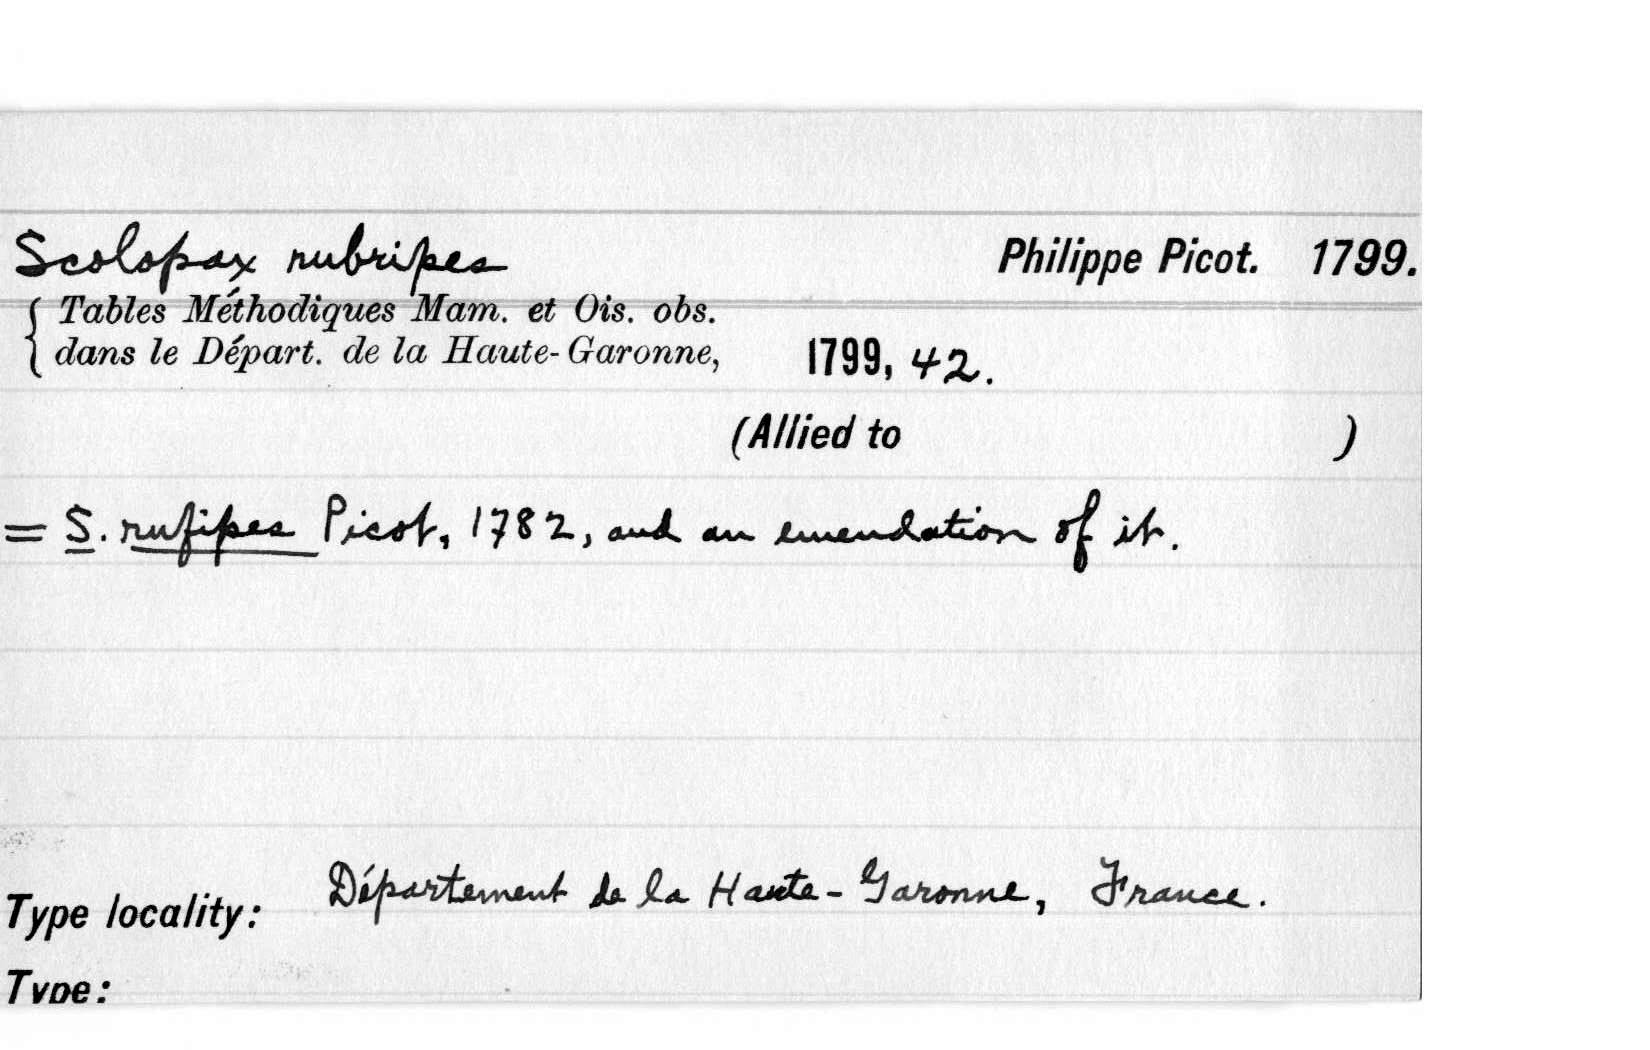 Scolopax rubripes Philippe Picot. 1799.
Tables Méthodiques Mam. et Ois. obs.
dans le Départ. de la Haute-Garonne, 1799, 42.
(Allied to )
= S. rufipes Picot, 1782, and an emendation of it.
Type locality: Département de la Haute-Garonne, France.
Type: